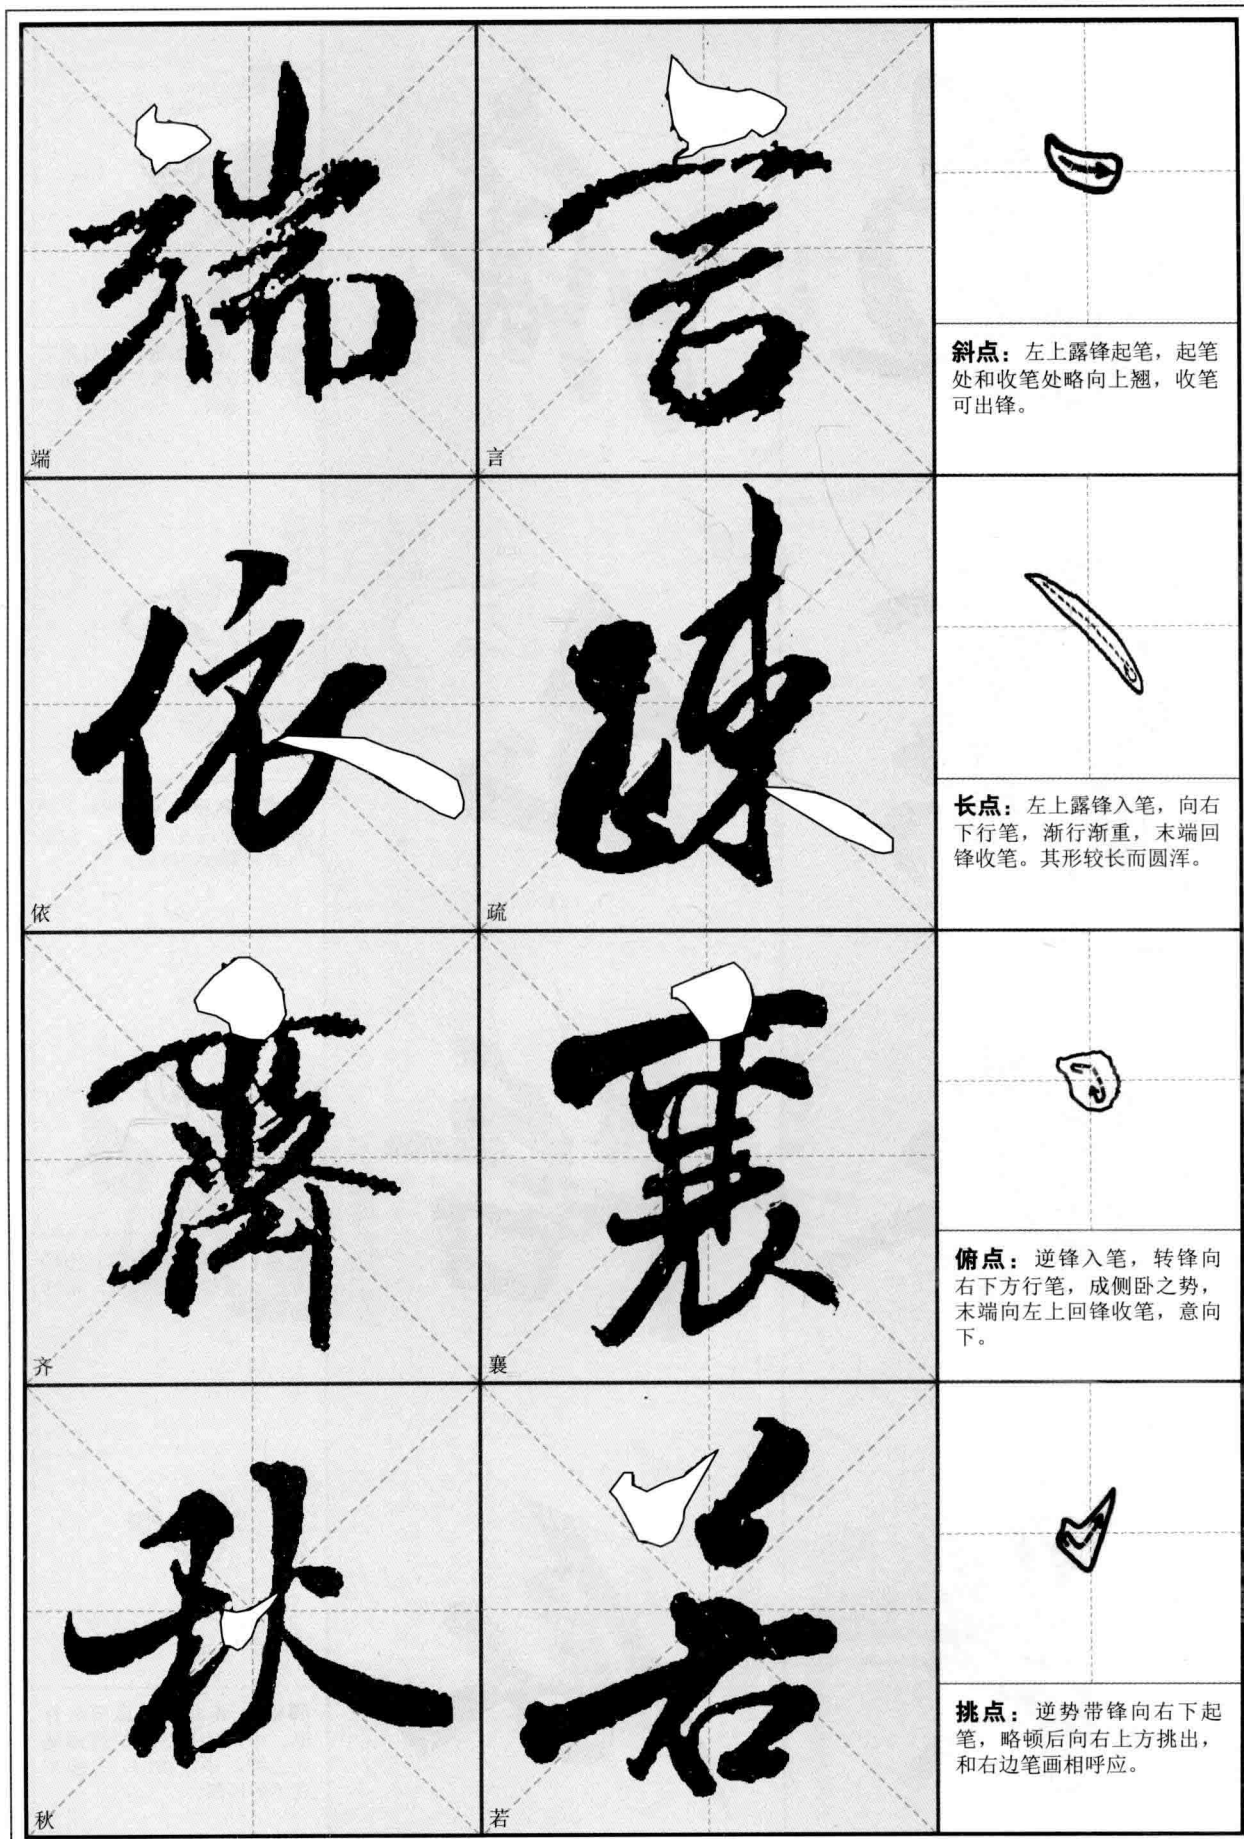 端
言
斜点：左上露锋起笔，起笔
处和收笔处略向上翘，收笔
可出锋。
依
疏
长点：左上露锋入笔，向右
下行笔，渐行渐重，末端回
锋收笔。其形较长而圆浑。
齐
襄
俯点：逆锋入笔，转锋向
右下方行笔，成侧卧之势，
末端向左上回锋收笔，意向
下。
秋
若
挑点：逆势带锋向右下起
笔，略顿后向右上方挑出，
和右边笔画相呼应。